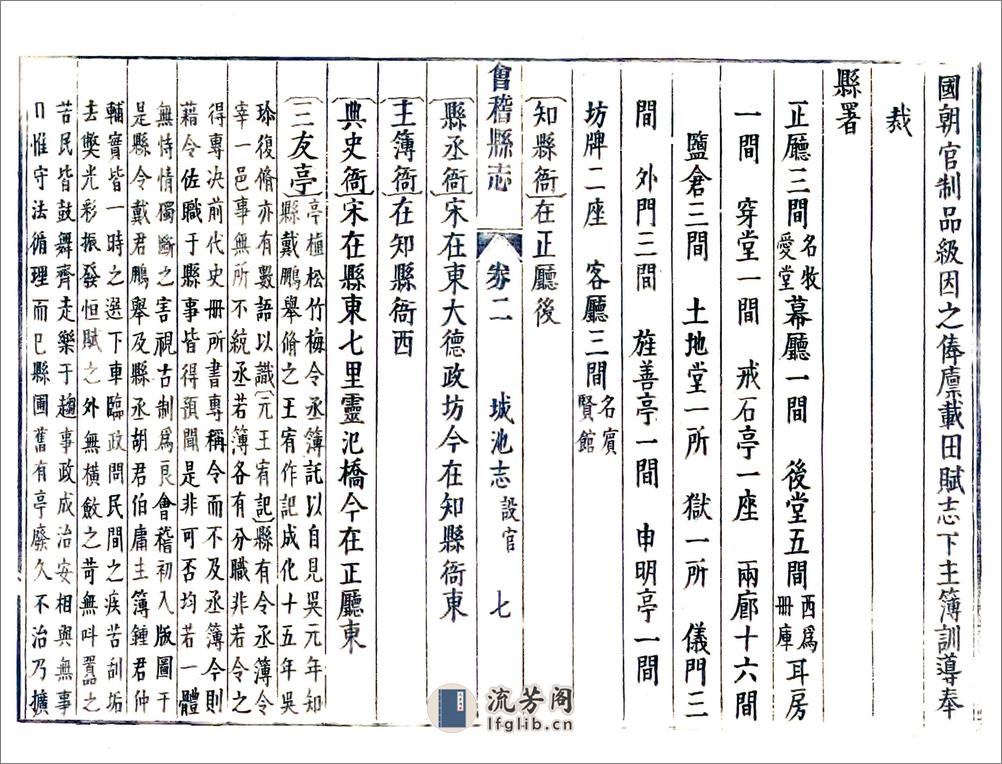 國朝官制品級因之俸廪載田賦志下主簿訓導奉
裁
縣署
正廳三間名牧愛堂幕廳一間　後堂五間西爲冊庫耳房
一間　穿堂一間　戒石亭一座　兩廊十六間
鹽倉三間　土地堂一所　獄一所　儀門三
間　外門三間　旌善亭一間　申明亭一間
坊牌二座　客廳三間名賓賢館
知縣衙在正廳後
會稽縣志　卷二　城池志　設官　七
縣丞衙宋在東大德政坊今在知縣衙東
主簿衙在知縣衙西
典史衙宋在縣東七里靈汜橋今在正廳東
三友亭亭植松竹梅令丞簿託以自見吳元年知
縣戴鵬舉脩之王宥作記成化十五年吳
㻂復脩亦有數語以識元王宥記縣有令丞簿令
宰一邑事無所不統丞若簿各有分職非若令之
得專决前代史册所書專稱令而不及丞簿今則
藉令佐職于縣事皆得預聞是非可否均若一體
無恃情獨斷之害視古制爲良會稽初入版圖于
是縣令戴君鵬舉及縣丞胡君伯庸主簿鍾君仲
輔實皆一時之選下車臨政問民間之疾苦刮垢
去獘光彩振發恒賦之外無橫斂之苛無呌囂之
苦民皆鼓舞齊走樂于趨事政成治安相與無事
日惟守法循理而已縣圃舊有亭廢久不治乃擴
流芳阁
lfglib.cn